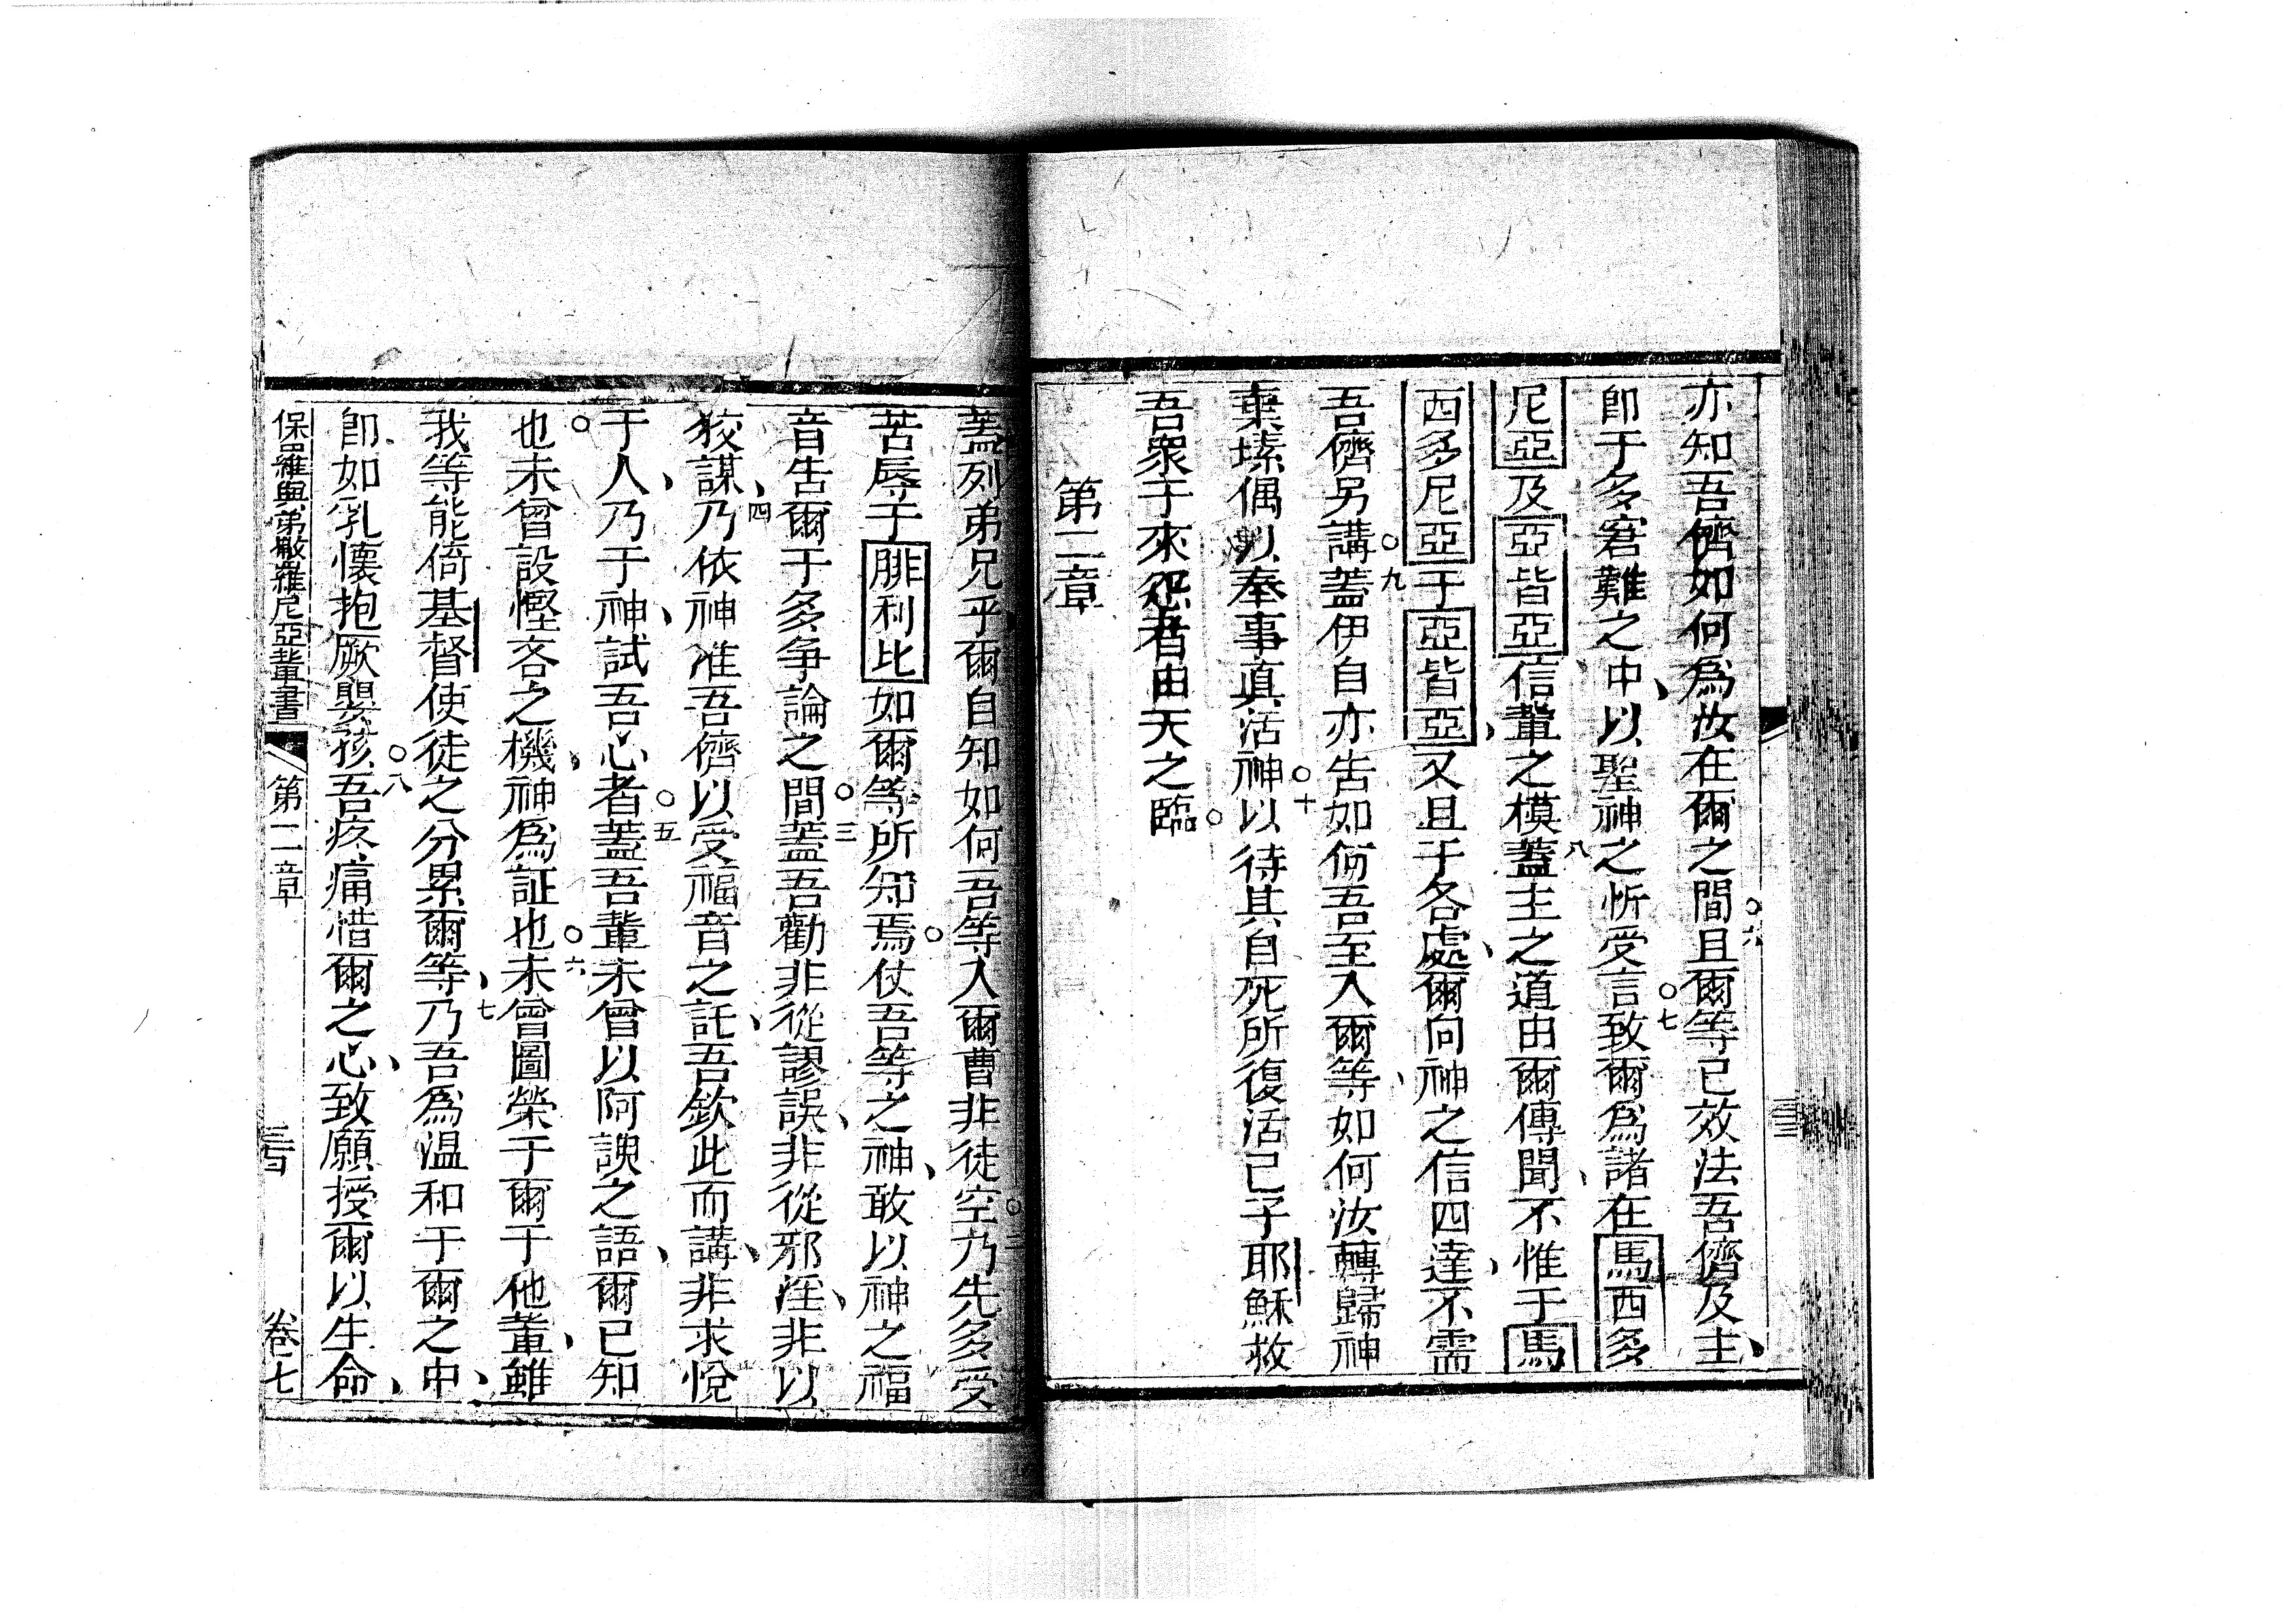 亦知吾儕如何爲汝在爾之間○六且爾等已效法吾儕及主、
卽于多窘難之中、以聖神之忻受言○七致爾爲諸在馬西多
尼亞及亞皆亞信輩之模八蓋主之道由爾傳聞、不惟于馬
西多尼亞于亞皆亞、又且于各處、爾向神之信四達、不需
吾儕另講○九蓋伊自亦吿如何吾至入爾等、如何汝轉歸神
棄塑偶以奉事真活神○十以待其自死所復活已子耶穌救
吾衆于來怒者由天之臨○
第二章
蓋列弟兄乎、爾自知如何吾等入爾曹非徒空○二乃先多受
苦辱于腓利比如爾等所知焉○仗吾等之神、敢以神之福
音吿爾于多爭論之間○三蓋吾勸非從謬誤、非從邪淫、非以
狡謀、四乃依神准吾儕以受福音之託、吾欽此而講、非求悅
于人、乃于神、試吾心者○五蓋吾輩未曾以阿諛之語、爾已知
○也未曾設慳吝之機、神爲証也○六未曾圖榮于爾于他輩、雖
我等能倚基督使徒之分累爾等、七乃吾爲溫和于爾之中、
卽如乳懷抱厥嬰孩○八吾疼痛惜爾之心、致願授爾以生命、
保羅與弟撒羅尼亞輩書
第二章
卷七